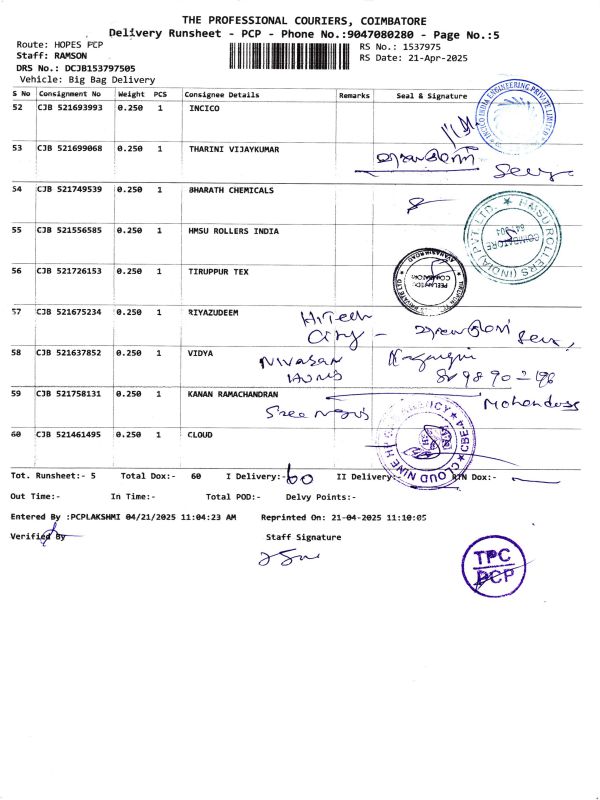 THE PROFESSIONAL COURIERS, COIMBATORE
Delivery Runsheet - PCP - Phone No.:9047080280 - Page No.:5
Route: HOPES PCP
RS No.: 1537975
Staff: RAMSON
RS Date: 21-Apr-2025
DRS No.: DCJB153797505
Vehicle: Big Bag Delivery
S No Consignment No Weight PCS Consignee Details Remarks Seal & Signature
52 CJB 521693993 0.250 1 INCICO
INCICO INDIA ENGINEERING PRIVATE LIMITED
53 CJB 521699068 0.250 1 THARINI VIJAYKUMAR
54 CJB 521749539 0.250 1 BHARATH CHEMICALS
55 CJB 521556585 0.250 1 HMSU ROLLERS INDIA
HMSU ROLLERS (INDIA) PVT. LTD.
COIMBATORE
56 CJB 521726153 0.250 1 TIRUPPUR TEX
57 CJB 521675234 0.250 1 RIYAZUDEEM
HiTech
City -
58 CJB 521637852 0.250 1 VIDYA
Nivasan
59 CJB 521758131 0.250 1 KANAN RAMACHANDRAN
Mohandoss
Sree
60 CJB 521461495 0.250 1 CLOUD
CLOUD NINE AGENCY CBE-4
Tot. Runsheet:- 5 Total Dox:- 60 I Delivery:- 60 II Delivery:- RTN Dox:-
Out Time:- In Time:- Total POD:- Delvy Points:-
Entered By :PCPLAKSHMI 04/21/2025 11:04:23 AM Reprinted On: 21-04-2025 11:10:05
Verified By Staff Signature
TPC
PCP